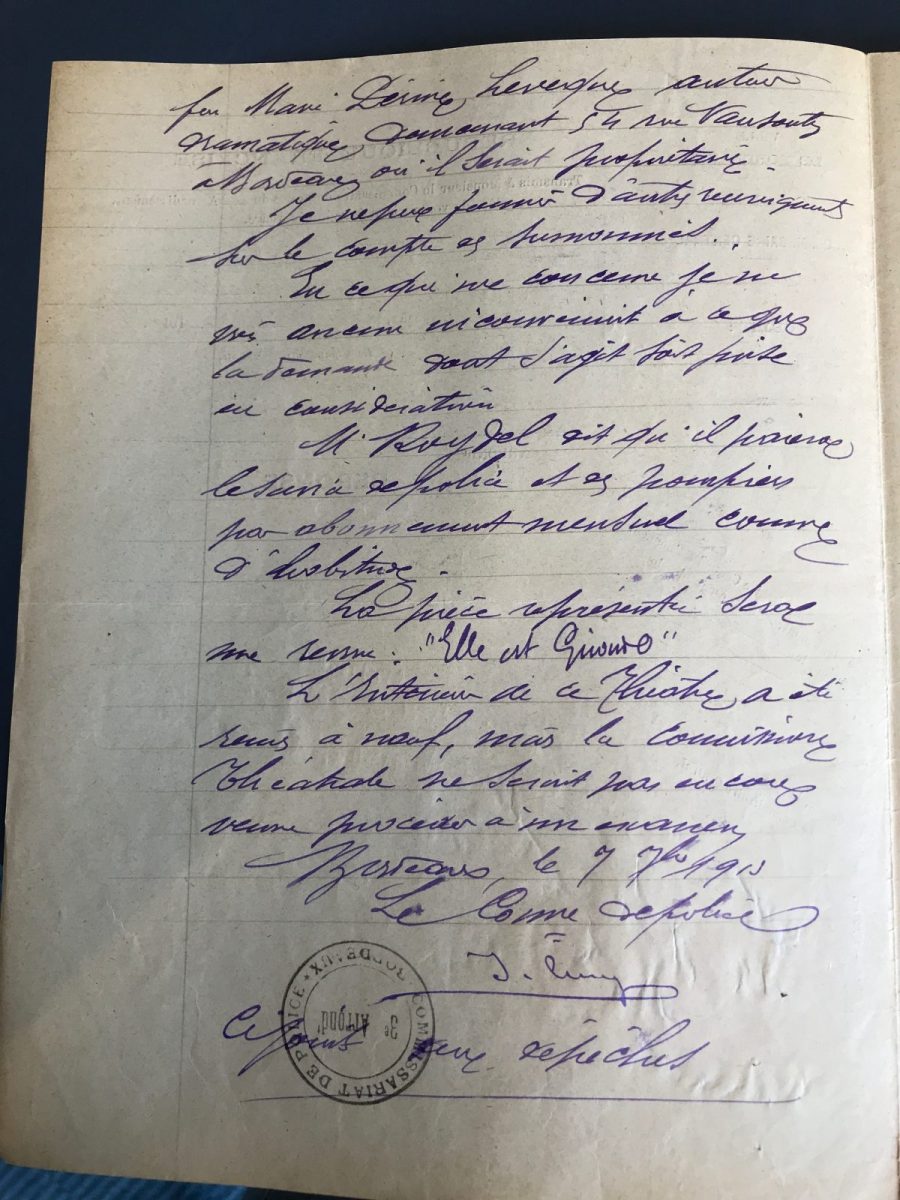 feu Marie Désiré Levesque auteur
dramatique, demeurant 54 rue
à Bordeaux où il serait propriétaire.
Je ne peux fournir d'autres renseignements
sur le compte des surnommés.
En ce qui me concerne je ne
vois aucun inconvénient à ce que
la demande dont s'agit soit prise
en considération
Mr Roydel dit qu'il paiera
le service de police et des pompiers
par abonnement mensuel comme
d'habitude.
La pièce représentée sera
une revue : "Elle est Girond"
L'Intérieur de ce Théâtre a été
remis à neuf, mais la commission
Théâtrale ne serait pas encore
venue procéder à un examen
Bordeaux, le 7 7bre 191
Le Comre de police
Ci joint deux dépêches
COMMISSARIAT DE POLICE * BORDEAUX
3e Arrondt